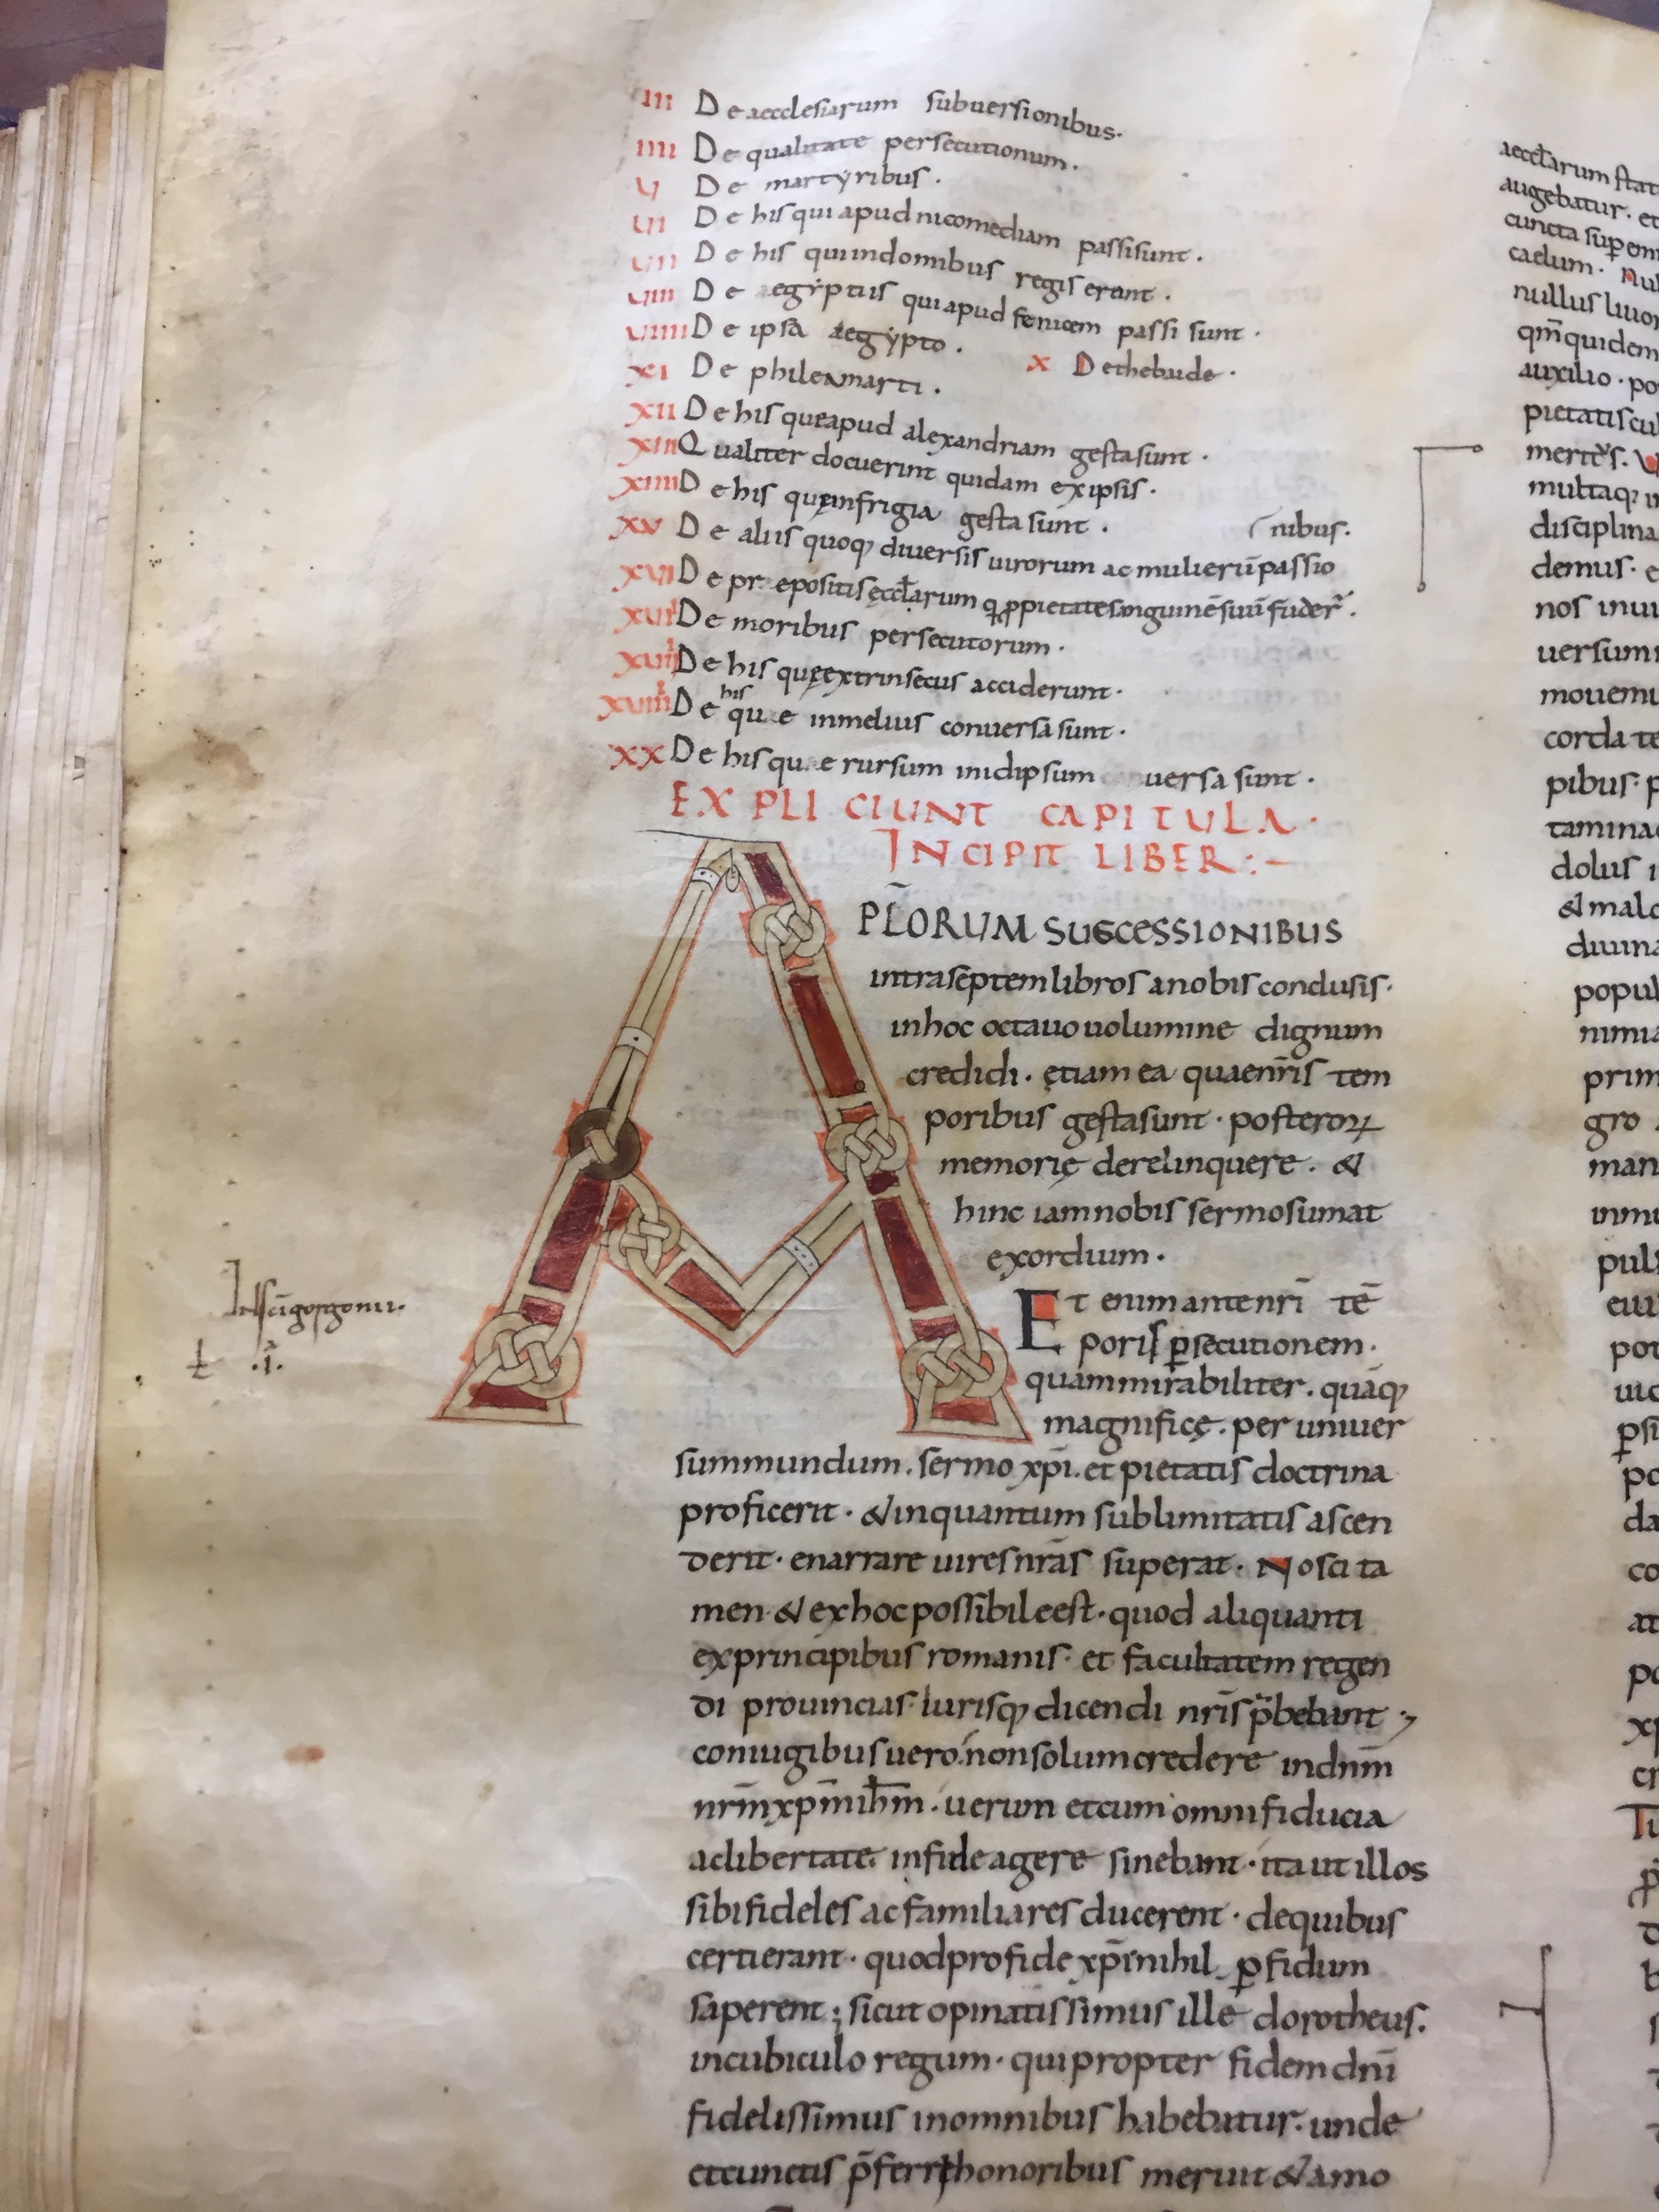 III De aecclesiarum subuersionibus.
IIII De qualitate persecutionum.
V De martyribus.
VI De his qui apud nicomediam passi sunt.
VII De his qui in domnibus regis erant.
VIII De aegyptiis qui apud fenicem passi sunt.
VIIII De ipsa aegypto. X De thebaide.
XI De philea marti.
XII De his que apud alexandriam gesta sunt.
XIII Qualiter docuerint quidam ex ipsis.
XIIII De his quę in frigia gesta sunt.
XV De aliis quoq; diuersis uirorum ac mulierū passio
nibus.
XVI De praepositis ęccłarum q̣ ꝓ pietate sanguinē suū fuder̄.
XVII De moribus persecutorum.
XVIII De his quę extrinsecus acciderunt.
XVIIII De his quae in melius conuersa sunt.
XX De his quae rursum in id ipsum uersa sunt.
EXPLICIUNT CAPITULA.
INCIPIT LIBER:-
APLORUM SUCCESSIONIBUS
intra septem libros a nobis conclusis.
in hoc octauo uolumine dignum
credidi. ętiam ea quae nr̄is tem
poribus gesta sunt. posteroꝝ
memorię derelinquere. &
hinc iam nobis sermo sumat
exordium.
Et enim ante nr̄i tē
poris ꝑsecutionem.
quam mirabiliter. quāq;
magnificę. per uniuer
In sc̄i gorgonii.
ł .i.
sum mundum. sermo xp̄i. et pietatis doctrina
proficerit. & in quantum sublimitatis ascen
derit. enarrare uires nr̄as superat. Nosci ta
men & ex hoc possibile est. quod aliquanti
ex principibus romanis. et facultatem regen
di prouincias iurisq; dicendi nr̄is p̄bebant.
coniugibus uero. non solum credere in dn̄m
nr̄m xp̄m ihm̄. uerum et cum omni fiducia
ac libertate in fide agere sinebant. ita ut illos
sibi fideles ac familiares ducerent. de quibus
certi erant. quod pro fide xp̄i nihil ꝑfidum
saperent; sicut opinatissimus ille dorotheus.
in cubiculo regum. qui propter fidem dn̄i
fidelissimus in omnibus habebatur. unde
et cunctis p̄ferri honoribus meruit & amo
aeccłarum stat
augebatur. et
cuncta supern
caelum. Nul
nullus liuor
qm̄ quidem
auxilio. po
pietatis cul
multaq; i
disciplina
demus. e
nos inui
uersum
mouemu
corda te
pibus. p
tamina
dolus i
& malo
diuina
popul
nimia
prim
gro
man
inmu